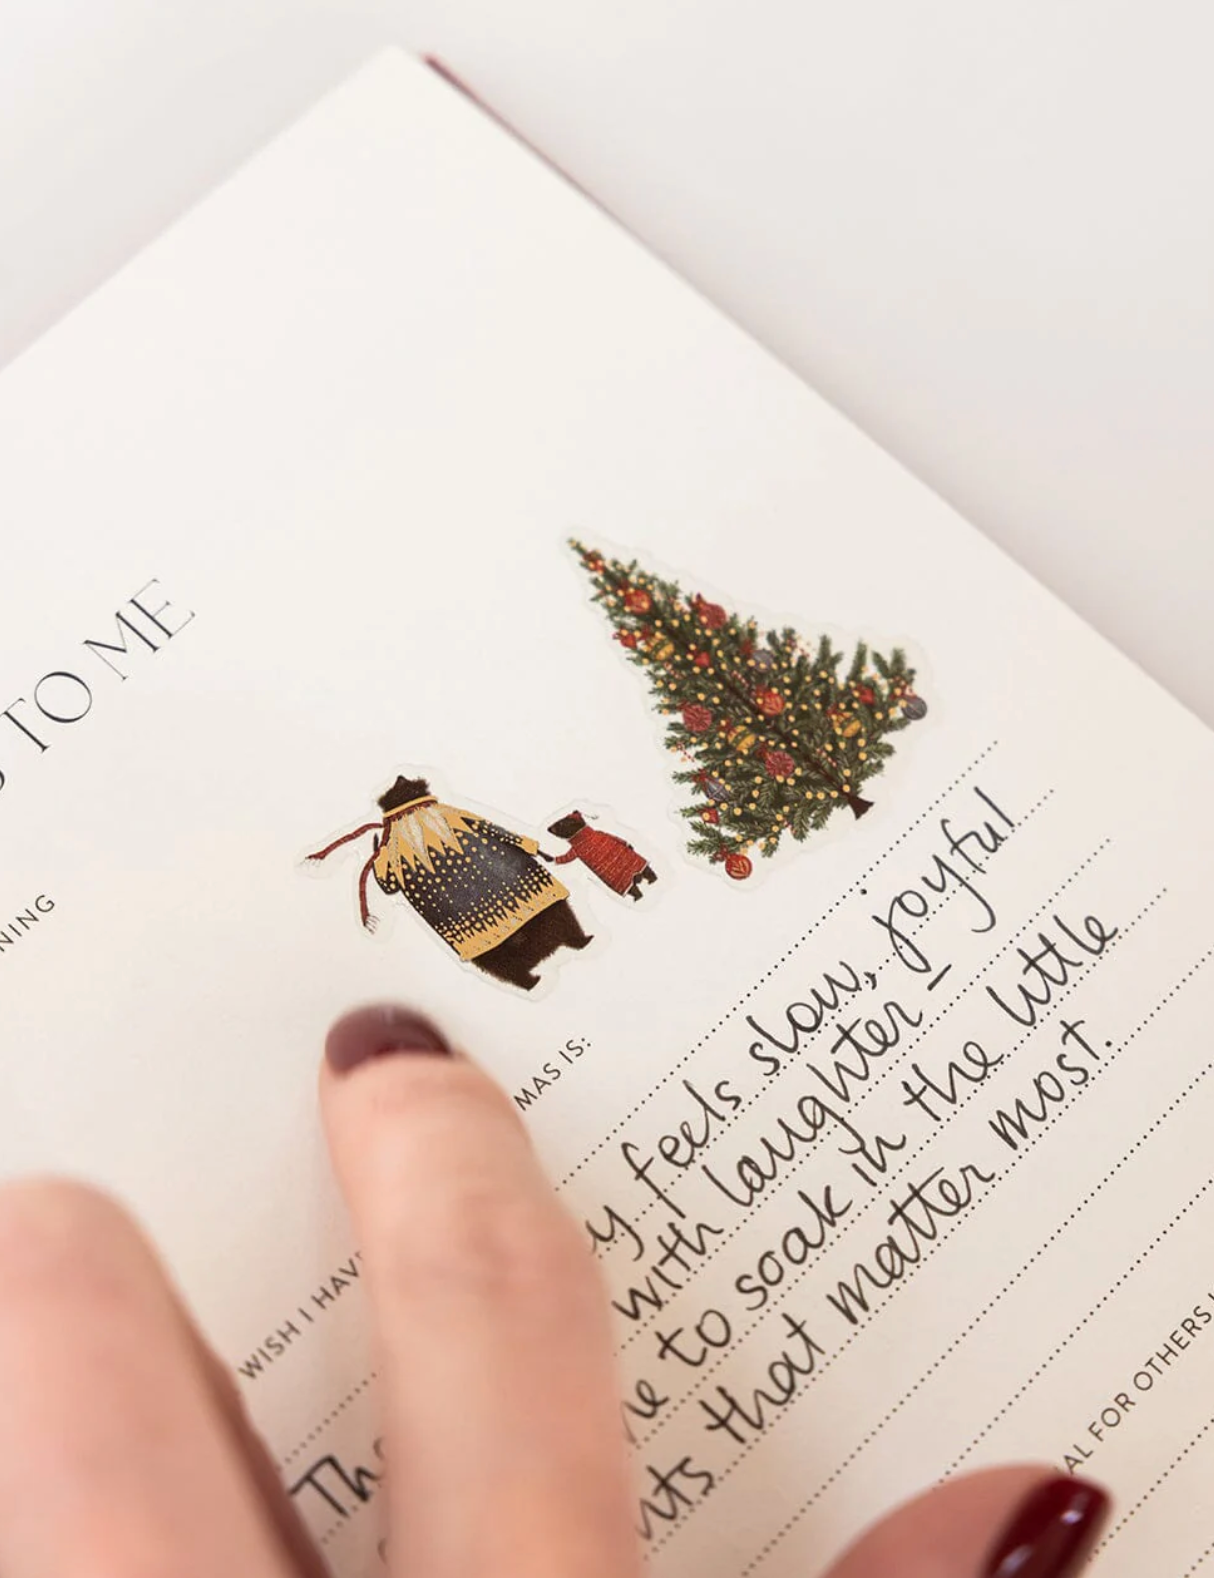 TO ME
MAS IS:
feels slow, joyful
with laughter -
to soak in the little
that matter most.
WISH I HAV
Th
FOR OTHERS